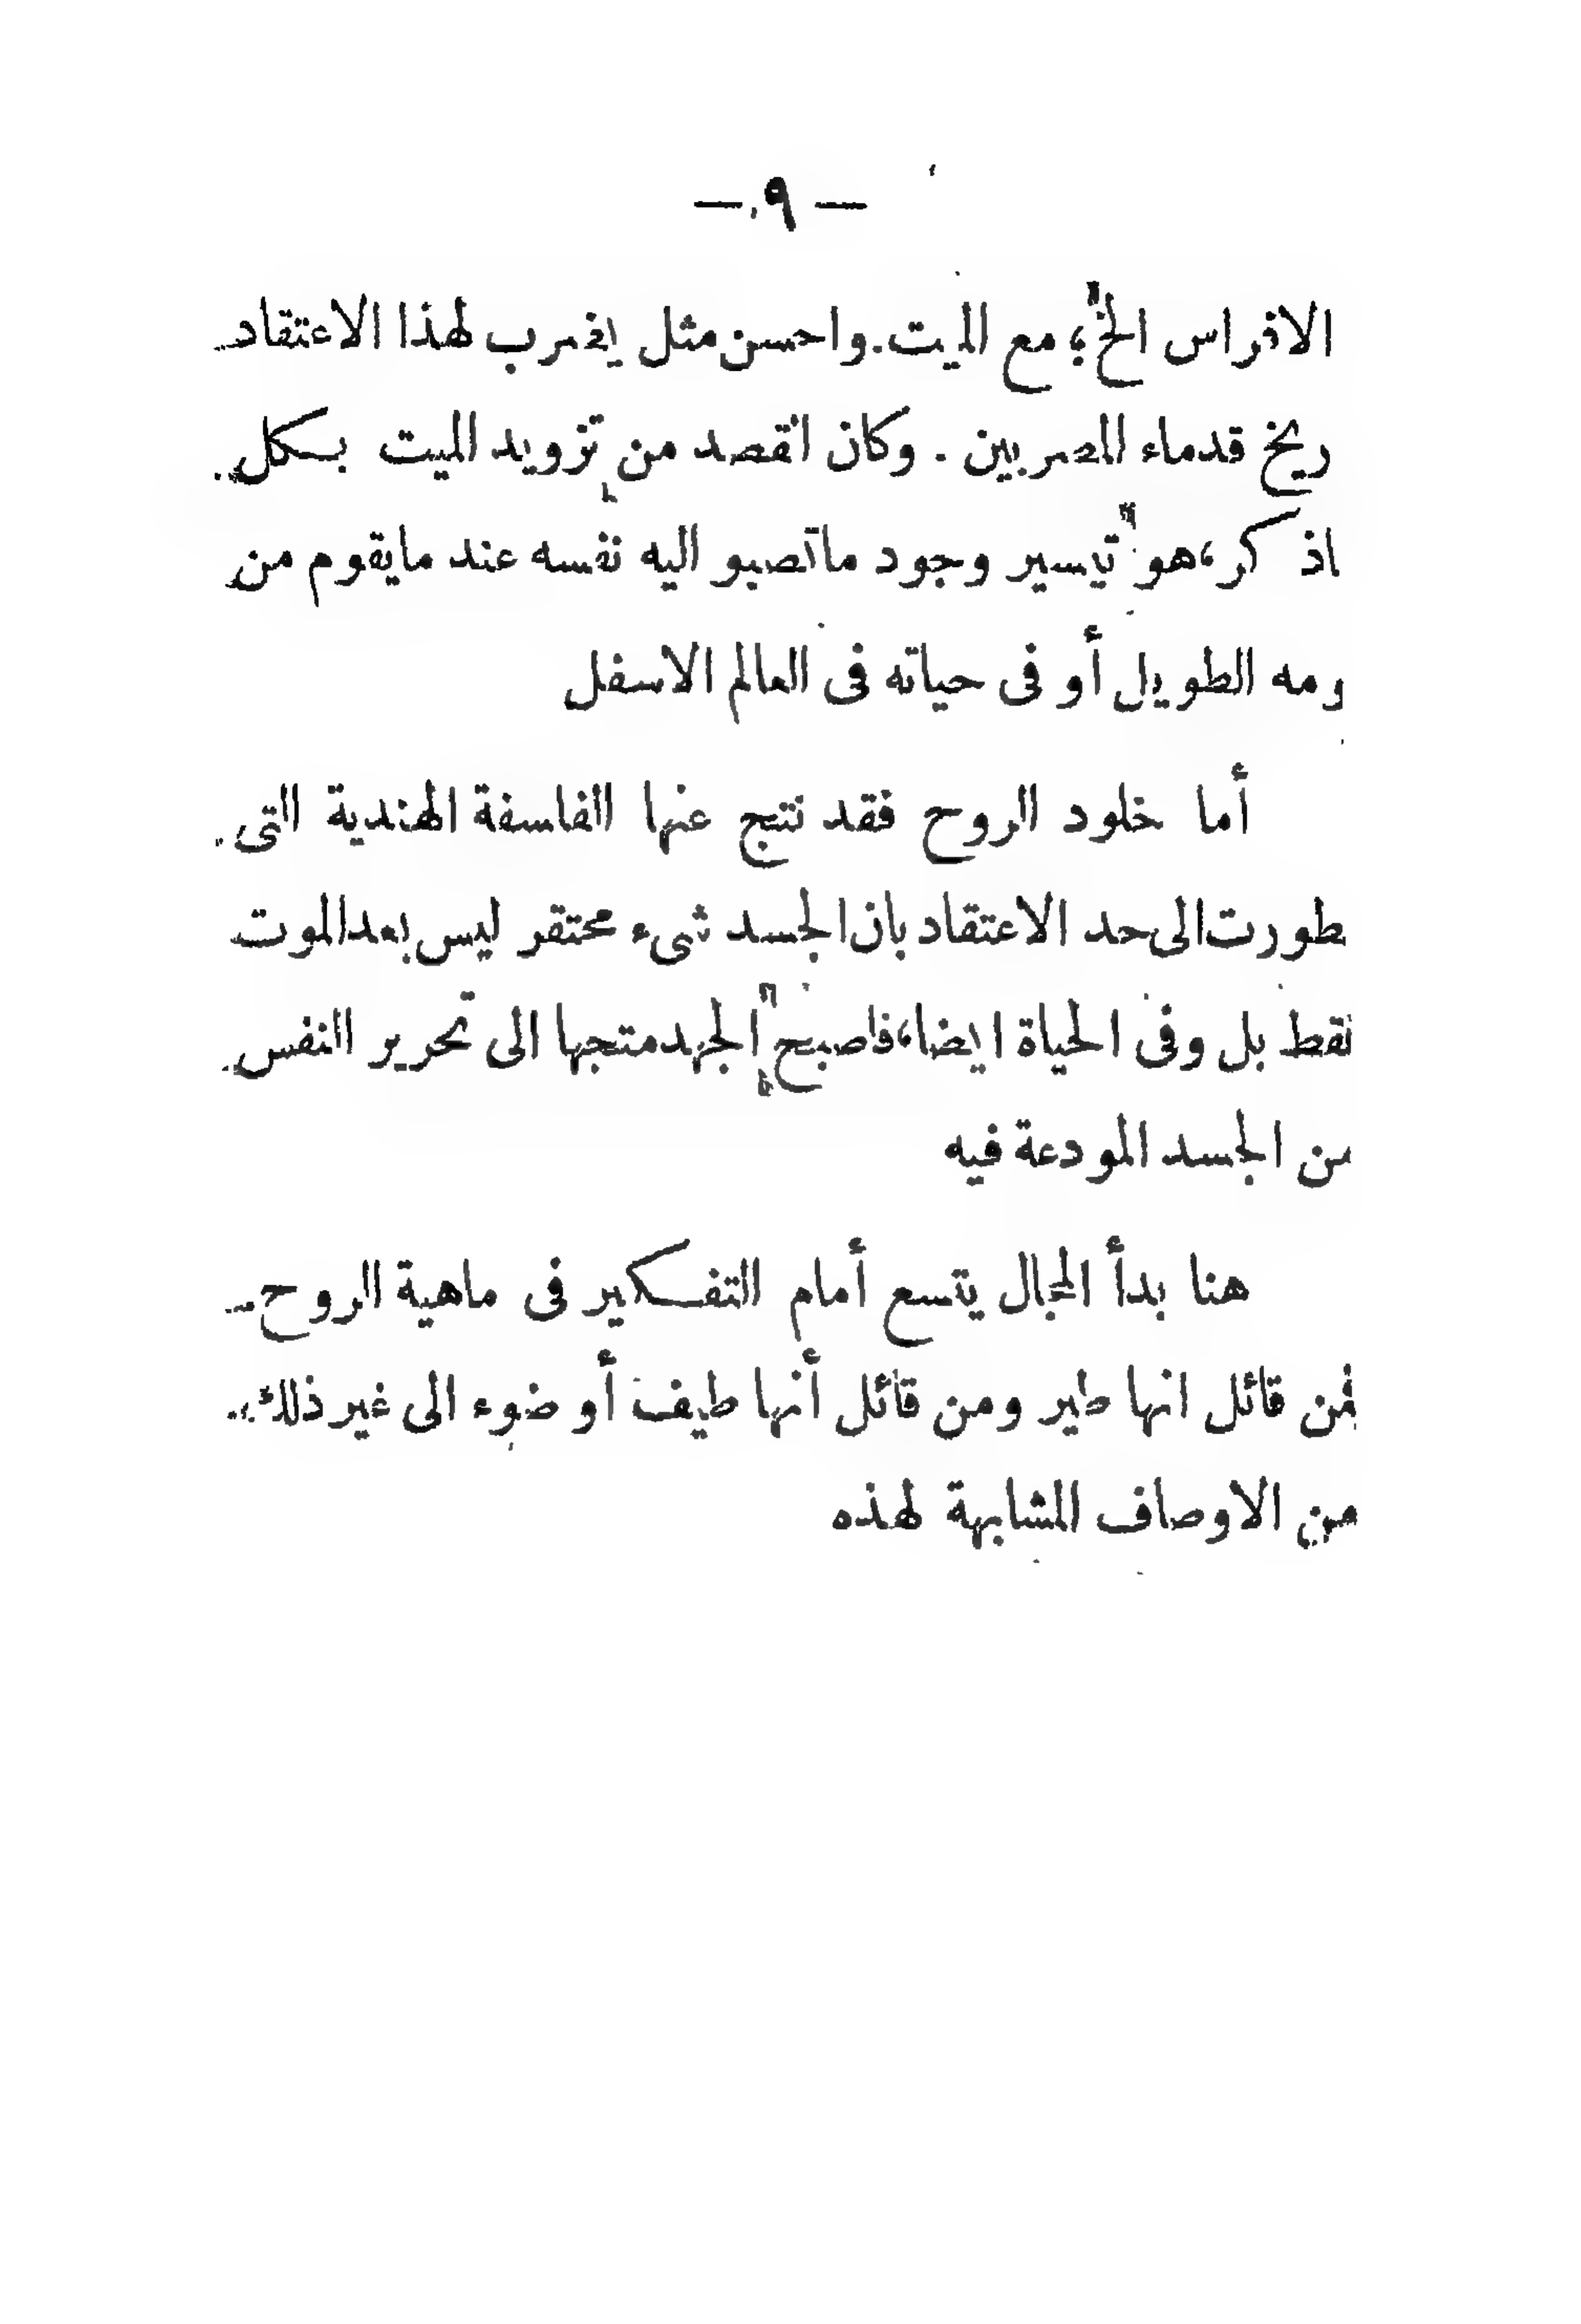 — ٩ —
الافراس الخ؛ مع الميت. واحسن مثل يضرب لهذا الاعتقاد
ريخ قدماء المصريين . وكان القصد من تزويد الميت بكل
اذكر، هو تيسير وجود ماتصبو اليه نفسه عند مايقوم من
ومه الطويل أو فى حياته فى العالم الاسفل
أما خلود الروح فقد نتج عنها الفلسفة الهندية التى
طورت الى حد الاعتقاد بان الجسد شىء محتقر ليس بعد الموت
فقط بل وفى الحياة ايضا، فاصبح الجهد متجها الى تحرير النفس
من الجسد المودعة فيه
هنا بدأ المجال يتسع أمام التفكير فى ماهية الروح
فمن قائل انها طير ومن قائل أنها طيف أو ضوء الى غير ذلك
من الاوصاف المشابهة لهذه